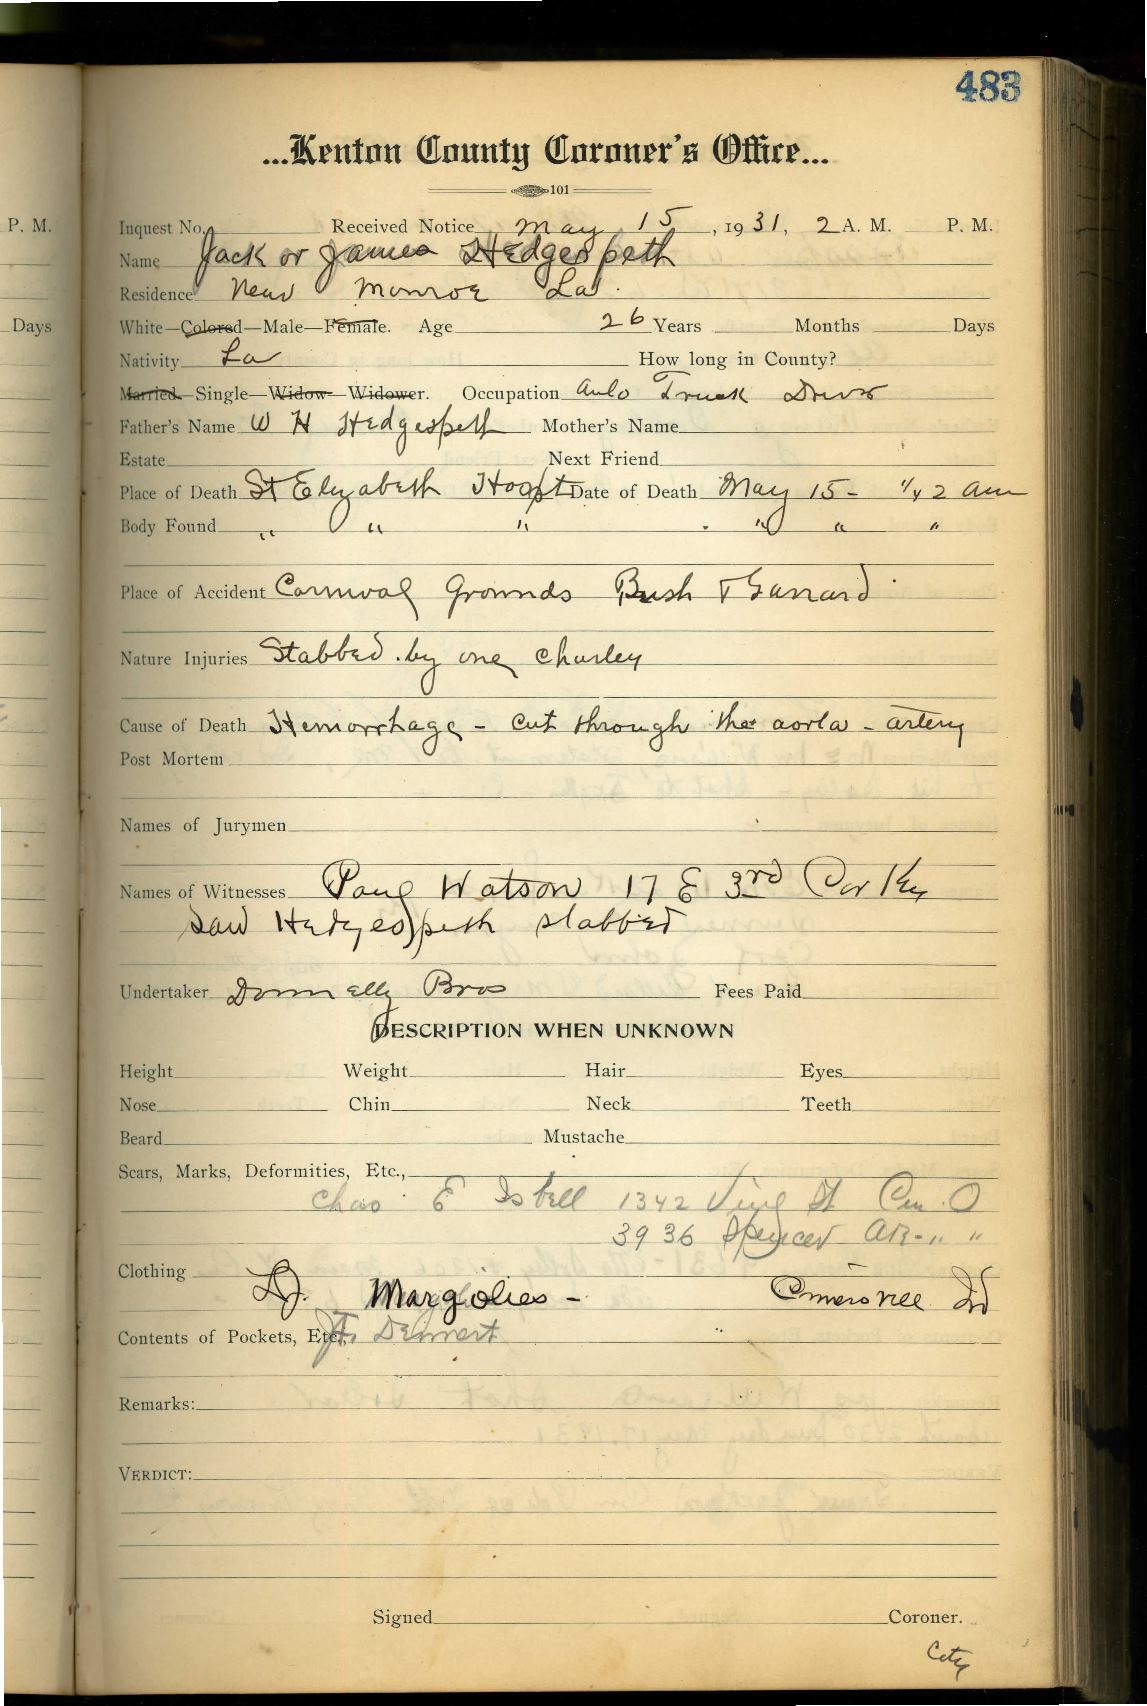 483
...Kenton County Coroner's Office...
101
P. M.
Inquest No. Received Notice May 15, 1931, 2 A. M. P. M.
Name Jack or James Hedgespeth
Residence Near Monroe La.
Days
White—Colored—Male—Female. Age 26 Years Months Days
Nativity La How long in County?
Married—Single—Widow—Widower. Occupation Auto Truck Driver
Father's Name W H Hedgespeth Mother's Name
Estate Next Friend
Place of Death St Elizabeth Hospt Date of Death May 15 - 1/4 2 am
Body Found " " " " " "
Place of Accident Carnival Grounds Bush & Garrard
Nature Injuries Stabbed by one Charley
Cause of Death Hemorrhage - cut through the aorta - artery
Post Mortem
Names of Jurymen
Names of Witnesses Paul Watson 17 E 3rd Cov Ky
Saw Hedgespeth stabbed
Undertaker Donnelly Bros Fees Paid
DESCRIPTION WHEN UNKNOWN
Height Weight Hair Eyes
Nose Chin Neck Teeth
Beard Mustache
Scars, Marks, Deformities, Etc.,
Chas E Isbell 1342 Vine St Cin. O
3936 Spencer Av - " "
Clothing
Margolies -
Contents of Pockets, Etc.
Remarks:
VERDICT:
Signed Coroner.
City